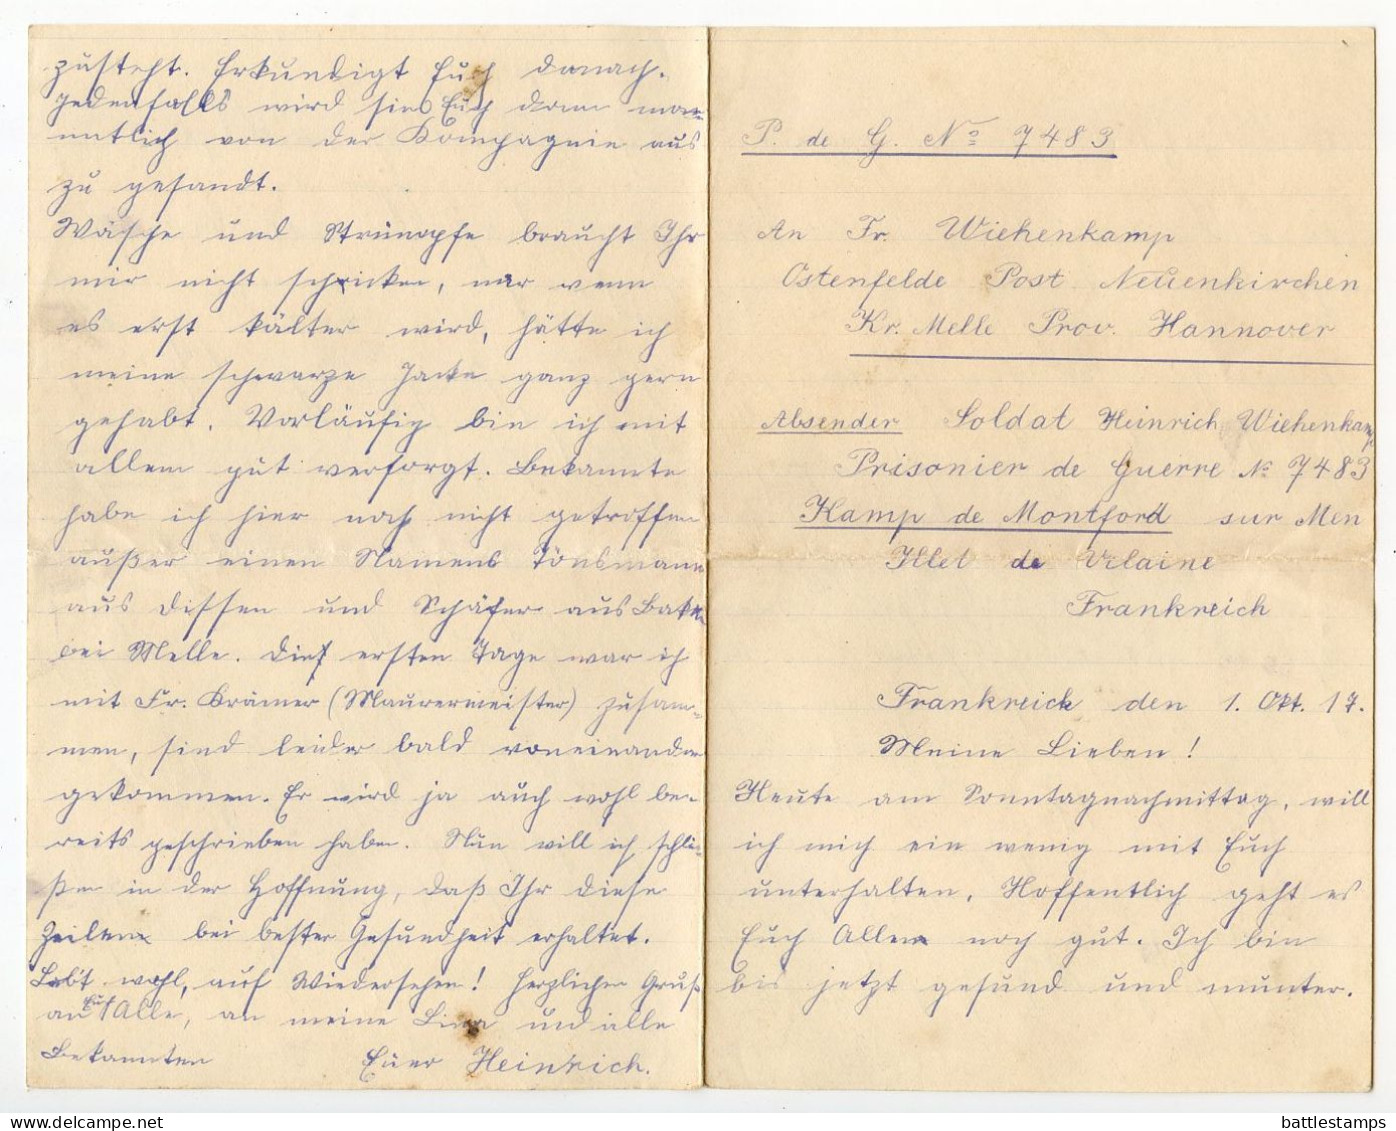 P. de G. No 7483
An Fr. Wiehenkamp
Ostenfelde Post Neuenkirchen
Kr. Melle Prov. Hannover
Absender Soldat Heinrich Wiehenkamp
Prisonier de Guerre No 7483
Kamp de Montford sur Men
Illet de Vilaine
Frankreich
Frankreich den 1. Okt. 17.
Meine Lieben!
Heute am Sonntagnachmittag, will
ich mich ein wenig mit Euch
unterhalten. Hoffentlich geht es
Euch Allen noch gut. Ich bin
bis jetzt gesund und munter.
zusteht. Erkundigt Euch danach.
Jedenfalls wird sie Euch dann mo-
natlich von der Kompagnie aus
zu gesandt.
Wäsche und Strümpfe braucht Ihr
mir nicht schicken, nur wenn
es erst kälter wird, hätte ich
meine schwarze Jacke ganz gern
gehabt. Vorläufig bin ich mit
allem gut versorgt. Bekannte
habe ich hier noch nicht getroffen
außer einen Namens Tönsmann
aus Dissen und Schäfer aus
bei Melle. Die ersten Tage war ich
mit Fr. Krämer (Maurermeister) zusam-
men, sind leider bald voneinander
gekommen. Er wird ja auch wohl be-
reits geschrieben haben. Nun will ich schli-
ßen in der Hoffnung, daß Ihr diese
Zeilen bei bester Gesundheit erhaltet.
Lebt wohl, auf Wiedersehen! Herzlichen Gruß
an Euch Alle, an meine Lina und alle
Bekannten Euer Heinrich.
battlestamps